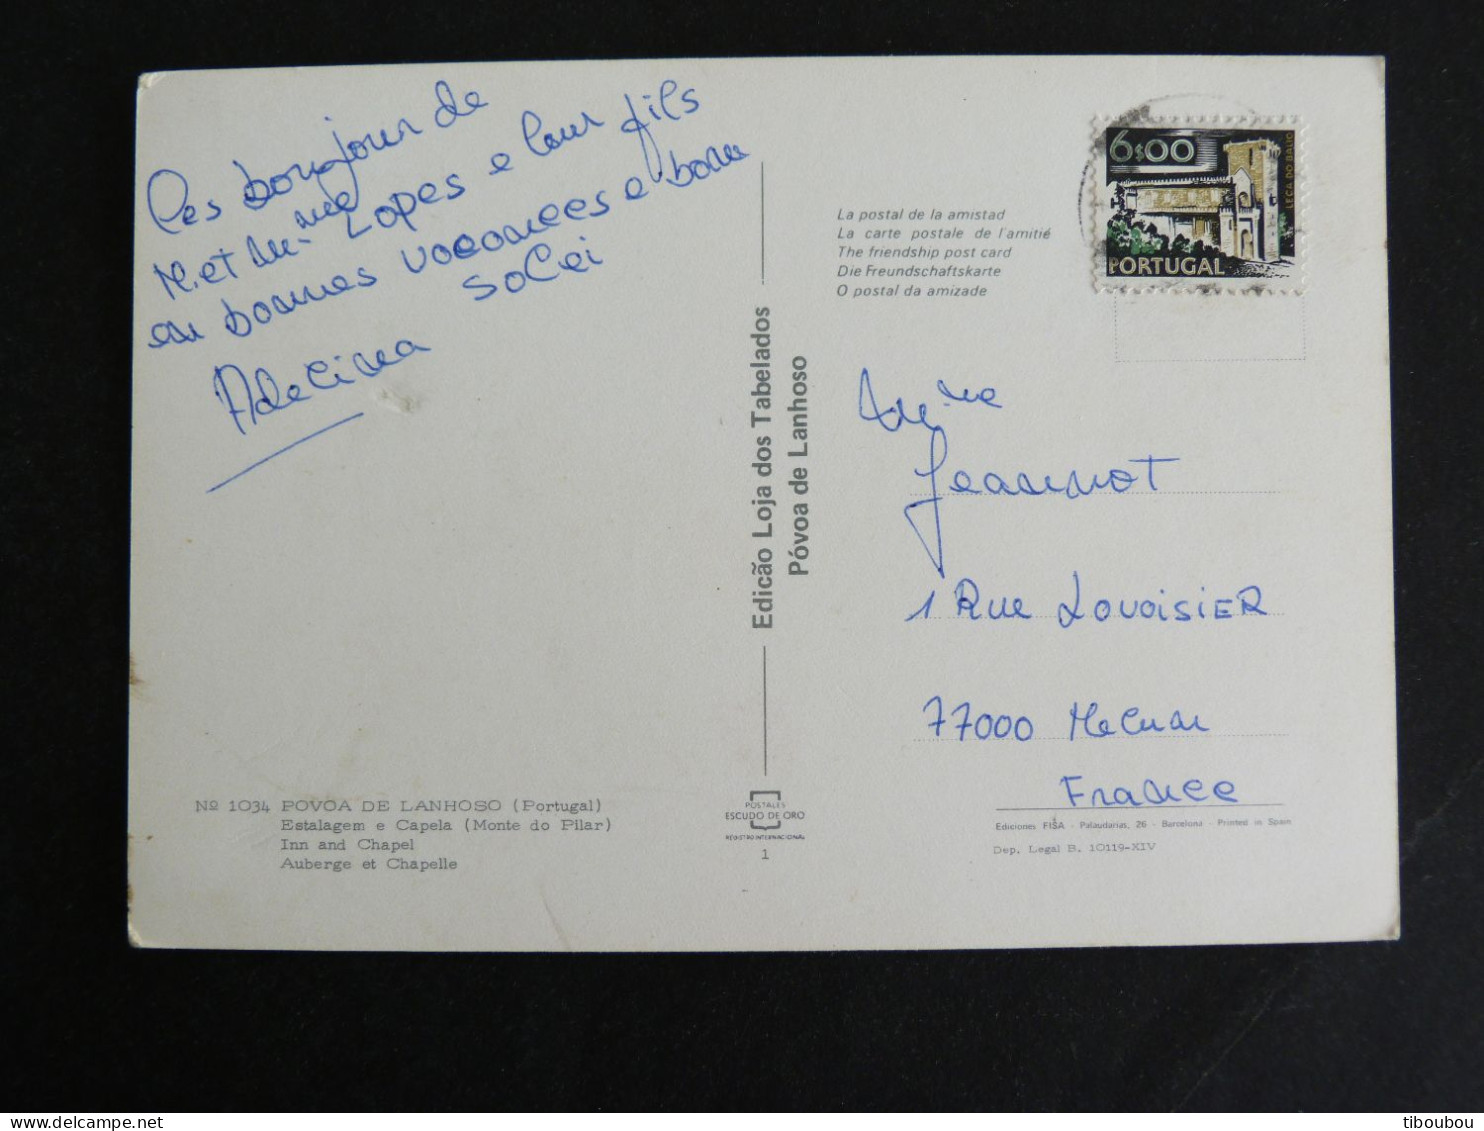 Les bonjour de
M. et Mme Lopes e leur fils
en bonnes vocances e bon
solei
Adelina
Edicão Loja dos Tabelados
Póvoa de Lanhoso
La postal de la amistad
La carte postale de l'amitié
The friendship post card
Die Freundschaftskarte
O postal da amizade
6$00
LEÇA DO BALIO
PORTUGAL
Jeannot
1 Rue Lovoisier
77000 Melun
France
Nº 1034 POVOA DE LANHOSO (Portugal)
Estalagem e Capela (Monte do Pilar)
Inn and Chapel
Auberge et Chapelle
POSTALES
ESCUDO DE ORO
REGISTRO INTERNACIONAL
1
Ediciones FISA - Palaudarias, 26 - Barcelona - Printed in Spain
Dep. Legal B. 10119-XIV
tiboubou